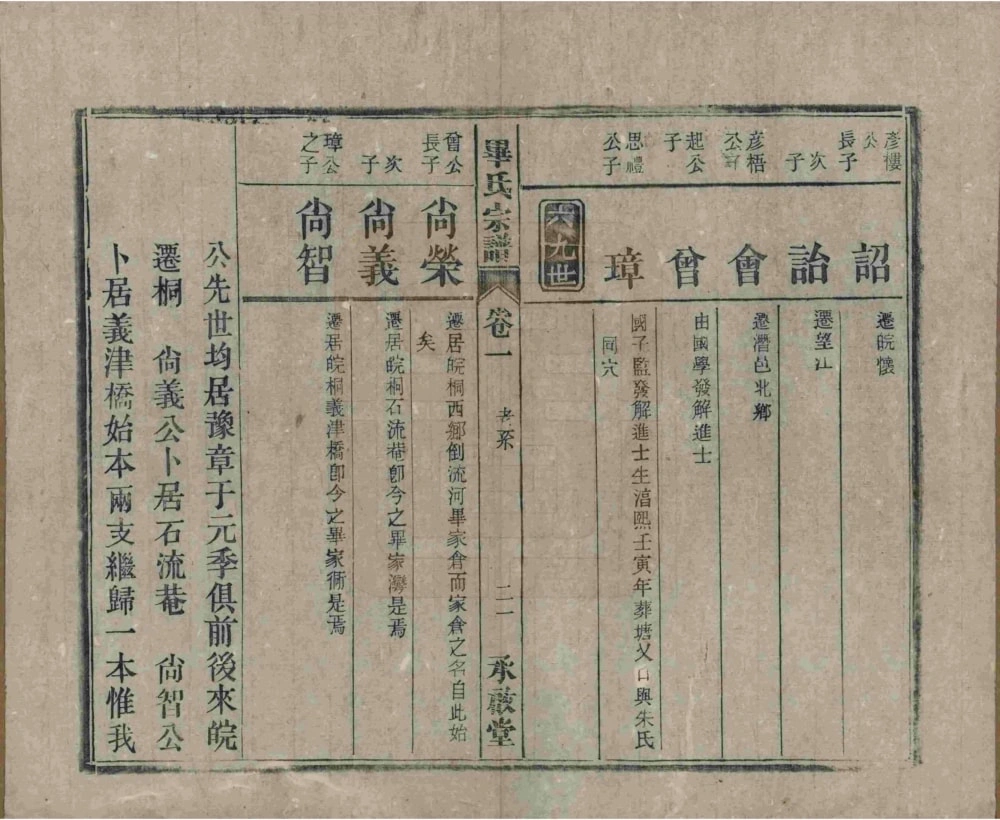 彥樓公長子
詔
遷皖懷
次子
詒
遷望江
彥梧公子
會
遷潛邑北鄉
起公子
曾
由國學發解進士
思禮公子
璋
國子監發解進士生淳熙壬寅年葬塘乂口與朱氏
同穴
六九世
畢氏宗譜
卷一
老系
二一
承啟堂
曾公長子
尙榮
遷居皖桐西鄉倒流河畢家倉而家倉之名自此始
矣
次子
尙義
遷居皖桐石流菴卽今之畢家灣是焉
璋公之子
尙智
遷居皖桐義津橋卽今之畢家衕是焉
公先世均居豫章于元季俱前後來皖
遷桐 尙義公卜居石流菴 尙智公
卜居義津橋始本兩支繼歸一本惟我